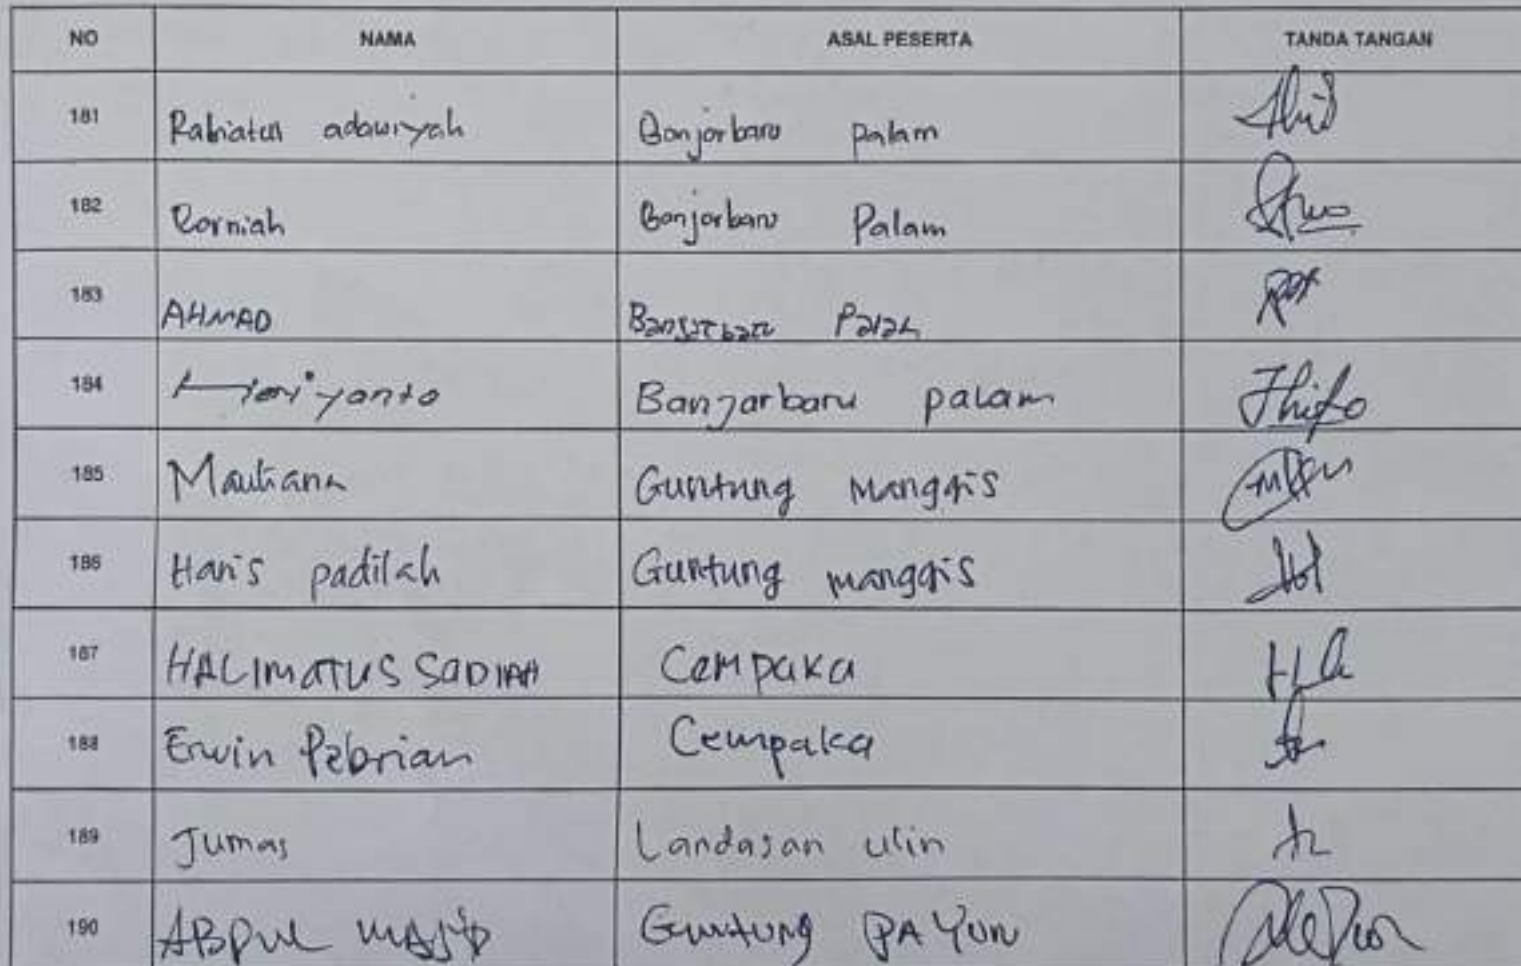 NO NAMA ASAL PESERTA TANDA TANGAN
181 Rabiatul adawiyah Banjarbaru palam
182 Rorniah Banjarbaru Palam
183 AHMAD Banjarbaru Palah
184 Hariyanto Banjarbaru palam
185 Mauliana Guntung manggis
186 Haris padilah Guntung manggis
187 HALIMATUS SADIAH Cempaka
188 Erwin Pebrian Cempaka
189 Jumas Landasan ulin
190 ABDUL MAJID Guntung PAYUN